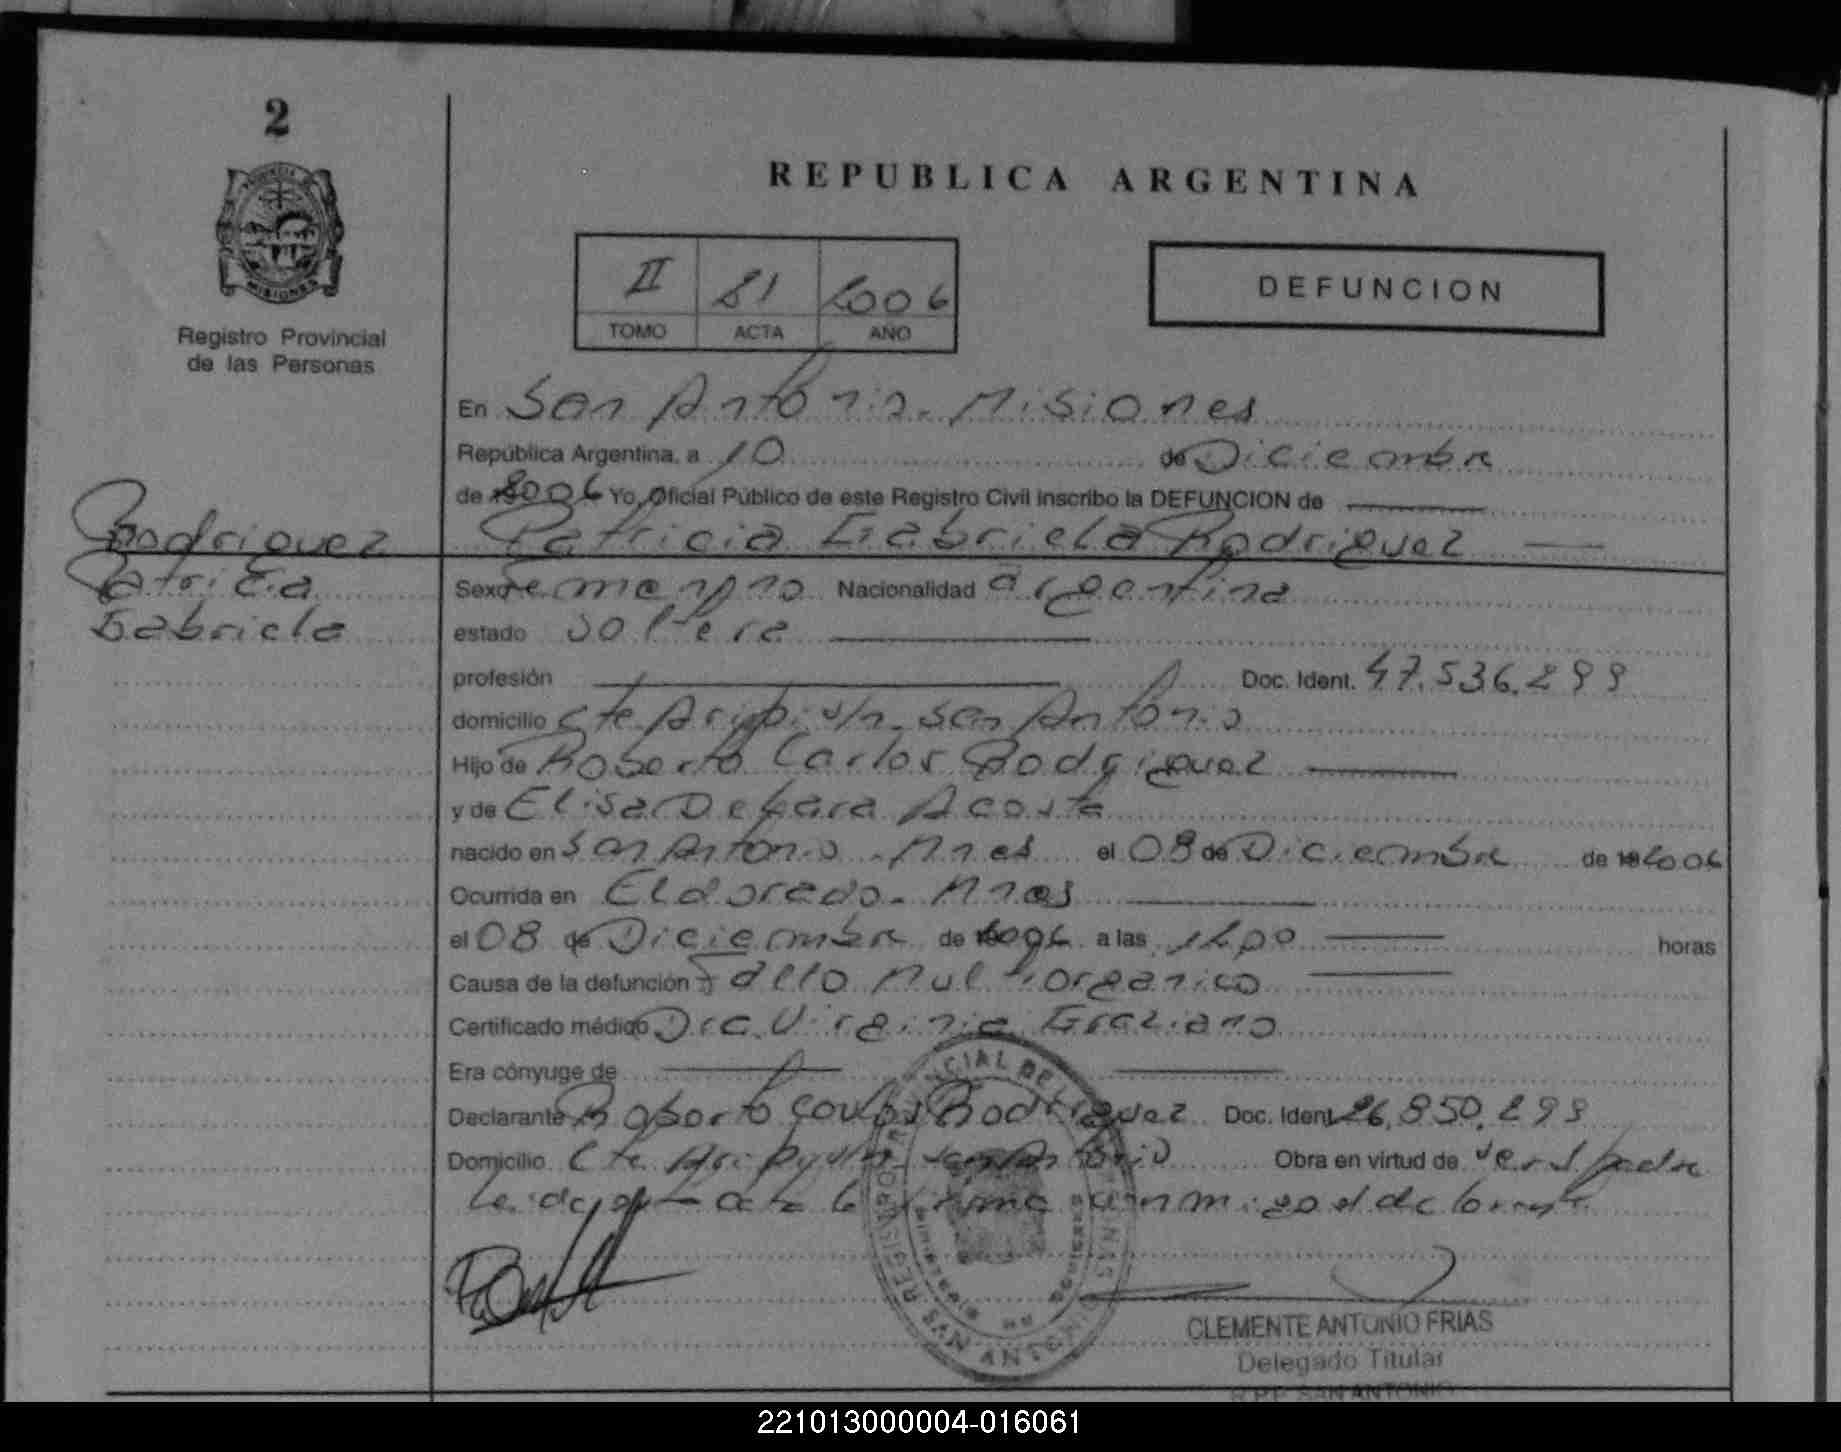 2
REPUBLICA ARGENTINA
PROVINCIA DE
MISIONES
Registro Provincial
de las Personas
II 81 2006
TOMO ACTA AÑO
DEFUNCION
En San Antonio. Misiones
República Argentina, a 10 de Diciembre
de 2006 Yo, Oficial Público de este Registro Civil inscribo la DEFUNCION de
Rodriguez
Patricia
Gabriela
Patricia Gabriela Rodriguez
Sexo Femenino Nacionalidad argentina
estado soltera
profesión Doc. Ident. 47.536.299
domicilio Cte s/n. San Antonio
Hijo de Roberto Carlos Rodriguez
y de Elisa Acosta
nacido en San Antonio. Mnes el 08 de Diciembre de 2006
Ocurrida en Eldorado. Mnes
el 08 de Diciembre de 2006 a las 1200 horas
Causa de la defunción Fallo Multiorganico
Certificado médico Dra. Virginia Graziano
Era cónyuge de
Declarante Roberto Carlos Rodriguez Doc. Ident 26.850.299
Domicilio Cte San Antonio Obra en virtud de ser el padre
Leida el acta la firma conmigo el declarante
CLEMENTE ANTONIO FRIAS
Delegado Titular
R.P.P. SAN ANTONIO
221013000004-016061